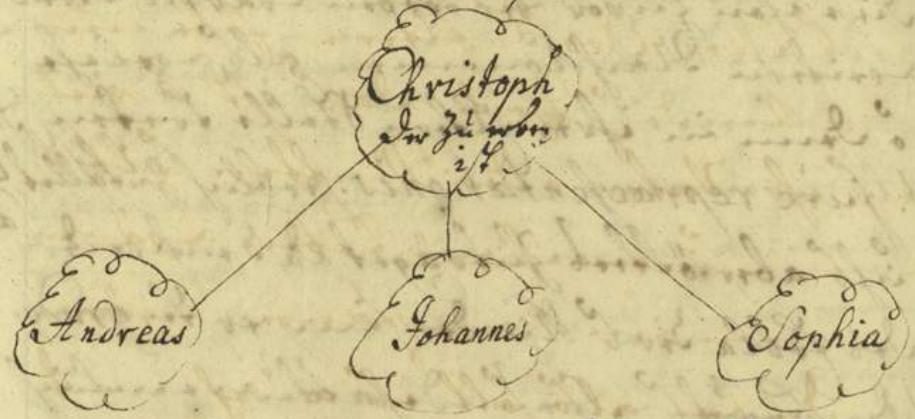 Christoph
der zu erben
ist
Andreas Johannes Sophia